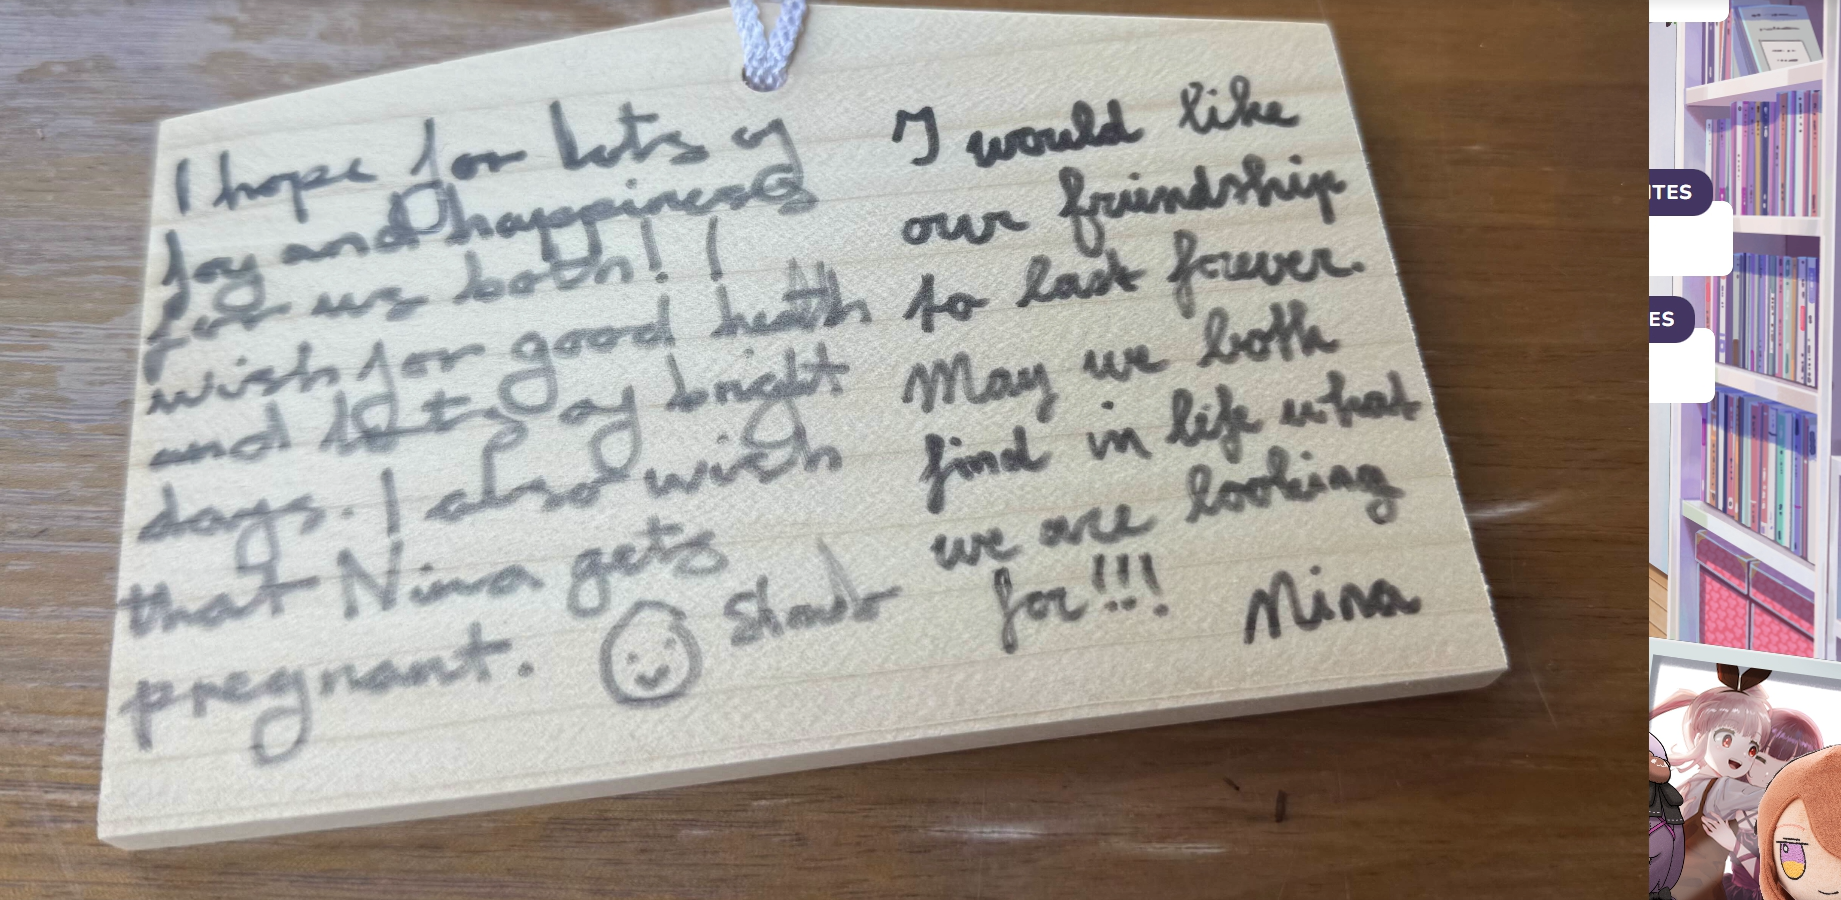 I hope for lots of
Joy and happiness
for us both! !
wish for good heath
and lots of bright
days. I also wish
that Nina gets
pregnant.
I would like
our friendship
to last forever.
May we both
find in life what
we are looking
for!!!
Nina
ITES
ES